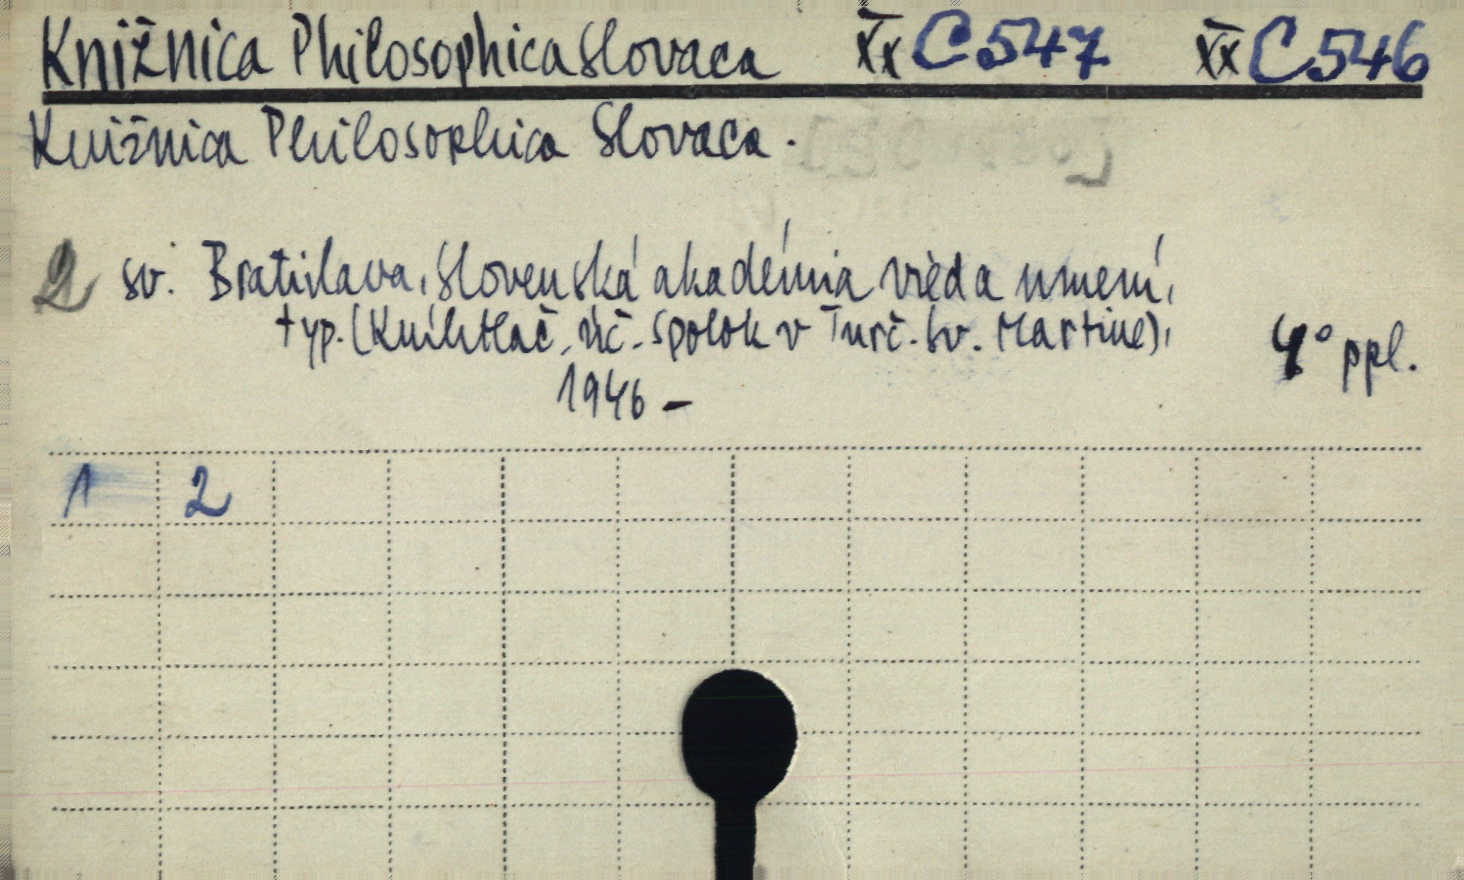 Knižnica Philosophica Slovaca XX C 547 XX C 546
Knižnica Philosophica Slovaca.
2 sv. Bratislava, Slovenská akadémia vied a umení,
typ. (Kníhtlač. úč. spolok v Turč. Sv. Martine),
1946 -
4° ppl.
1 2